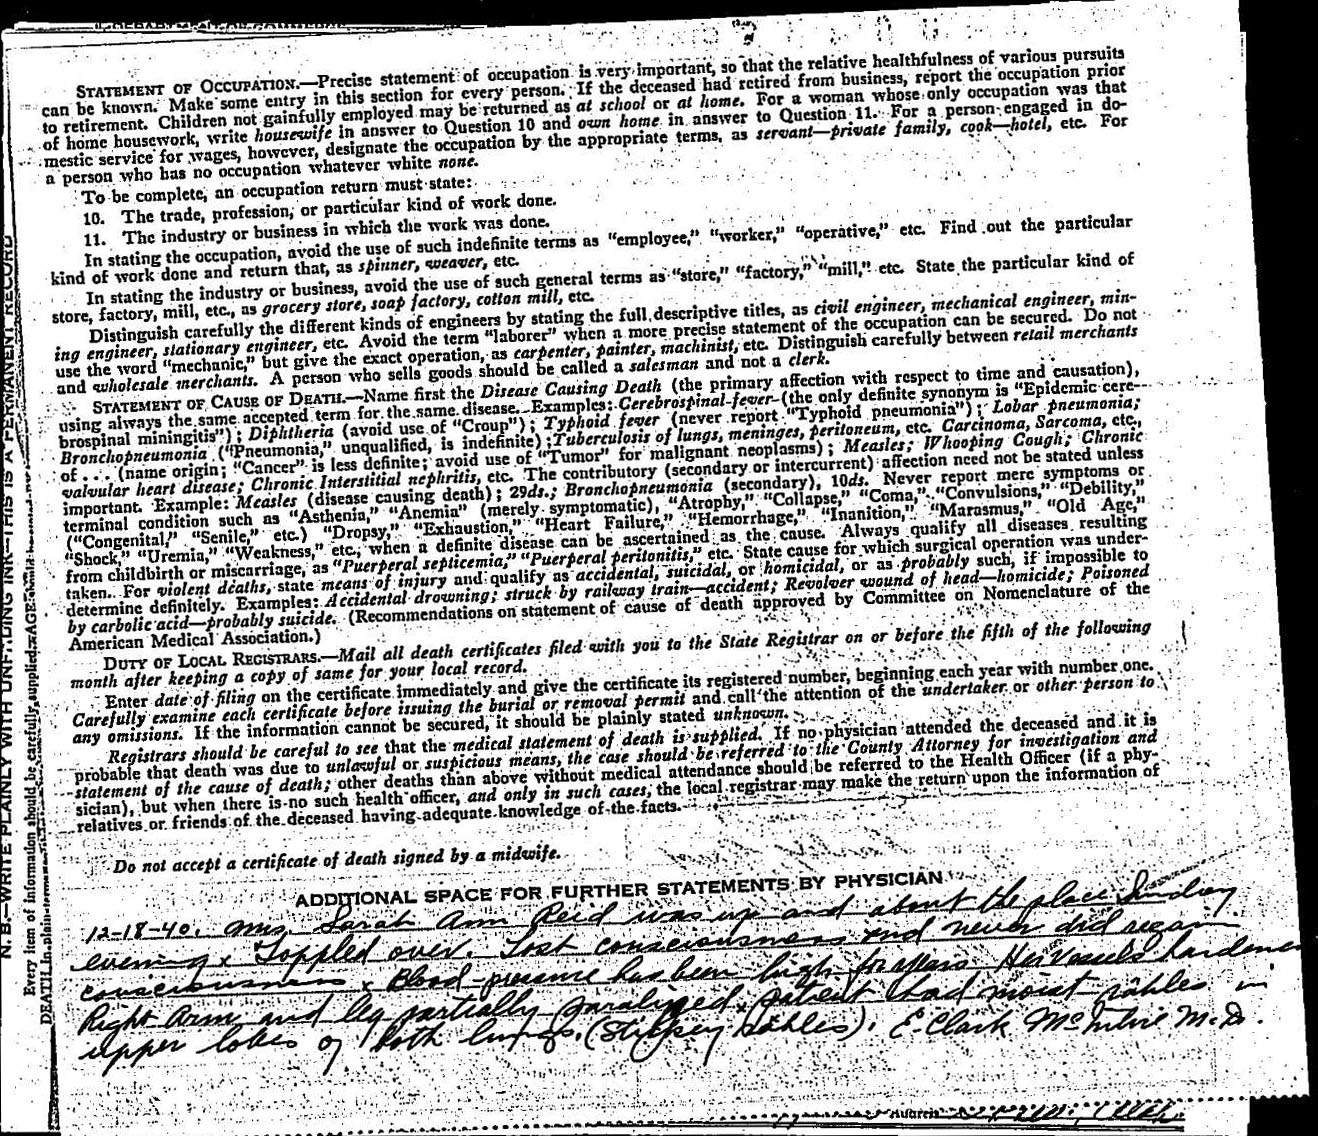 STATEMENT OF OCCUPATION.—Precise statement of occupation is very important, so that the relative healthfulness of various pursuits
can be known. Make some entry in this section for every person. If the deceased had retired from business, report the occupation prior
to retirement. Children not gainfully employed may be returned as at school or at home. For a woman whose only occupation was that
of home housework, write housewife in answer to Question 10 and own home in answer to Question 11. For a person engaged in do-
mestic service for wages, however, designate the occupation by the appropriate terms, as servant—private family, cook—hotel, etc. For
a person who has no occupation whatever white none.
To be complete, an occupation return must state:
10. The trade, profession, or particular kind of work done.
11. The industry or business in which the work was done.
In stating the occupation, avoid the use of such indefinite terms as "employee," "worker," "operative," etc. Find out the particular
kind of work done and return that, as spinner, weaver, etc.
In stating the industry or business, avoid the use of such general terms as "store," "factory," "mill," etc. State the particular kind of
store, factory, mill, etc., as grocery store, soap factory, cotton mill, etc.
Distinguish carefully the different kinds of engineers by stating the full descriptive titles, as civil engineer, mechanical engineer, min-
ing engineer, stationary engineer, etc. Avoid the term "laborer" when a more precise statement of the occupation can be secured. Do not
use the word "mechanic," but give the exact operation, as carpenter, painter, machinist, etc. Distinguish carefully between retail merchants
and wholesale merchants. A person who sells goods should be called a salesman and not a clerk.
STATEMENT OF CAUSE OF DEATH.—Name first the Disease Causing Death (the primary affection with respect to time and causation),
using always the same accepted term for the same disease. Examples: Cerebrospinal fever (the only definite synonym is "Epidemic cere-
brospinal miningitis"); Diphtheria (avoid use of "Croup"); Typhoid fever (never report "Typhoid pneumonia"); Lobar pneumonia;
Bronchopneumonia ("Pneumonia," unqualified, is indefinite); Tuberculosis of lungs, meninges, peritoneum, etc. Carcinoma, Sarcoma, etc.,
of . . . (name origin; "Cancer" is less definite; avoid use of "Tumor" for malignant neoplasms); Measles; Whooping Cough; Chronic
valvular heart disease; Chronic Interstitial nephritis, etc. The contributory (secondary or intercurrent) affection need not be stated unless
important. Example: Measles (disease causing death); 29ds.; Bronchopneumonia (secondary), 10ds. Never report mere symptoms or
terminal condition such as "Asthenia," "Anemia" (merely symptomatic), "Atrophy," "Collapse," "Coma," "Convulsions," "Debility,"
("Congenital," "Senile," etc.) "Dropsy," "Exhaustion," "Heart Failure," "Hemorrhage," "Inanition," "Marasmus," "Old Age,"
"Shock," "Uremia," "Weakness," etc., when a definite disease can be ascertained as the cause. Always qualify all diseases resulting
from childbirth or miscarriage, as "Puerperal septicemia," "Puerperal peritonitis," etc. State cause for which surgical operation was under-
taken. For violent deaths, state means of injury and qualify as accidental, suicidal, or homicidal, or as probably such, if impossible to
determine definitely. Examples: Accidental drowning; struck by railway train—accident; Revolver wound of head—homicide; Poisoned
by carbolic acid—probably suicide. (Recommendations on statement of cause of death approved by Committee on Nomenclature of the
American Medical Association.)
DUTY OF LOCAL REGISTRARS.—Mail all death certificates filed with you to the State Registrar on or before the fifth of the following
month after keeping a copy of same for your local record.
Enter date of filing on the certificate immediately and give the certificate its registered number, beginning each year with number one.
Carefully examine each certificate before issuing the burial or removal permit and call the attention of the undertaker or other person to
any omissions. If the information cannot be secured, it should be plainly stated unknown.
Registrars should be careful to see that the medical statement of death is supplied. If no physician attended the deceased and it is
probable that death was due to unlawful or suspicious means, the case should be referred to the County Attorney for investigation and
statement of the cause of death; other deaths than above without medical attendance should be referred to the Health Officer (if a phy-
sician), but when there is no such health officer, and only in such cases, the local registrar may make the return upon the information of
relatives or friends of the deceased having adequate knowledge of the facts.
Do not accept a certificate of death signed by a midwife.
ADDITIONAL SPACE FOR FURTHER STATEMENTS BY PHYSICIAN
12-18-40. Mrs. Sarah Ann Reid was up and about the place Sunday
evening. Toppled over. Lost consciousness and never did regain
consciousness. Blood pressure has been high for years. Her Vessels hardened
Right Arm and leg partially paralyzed, patient had moist rahles in
upper lobes of both lungs. (Stickey Rahles). E. Clark McIntire M.D.
Address
N. B.—WRITE PLAINLY WITH UNFADING INK—THIS IS A PERMANENT RECORD
Every item of information should be carefully supplied. AGE should
DEATH in plain terms